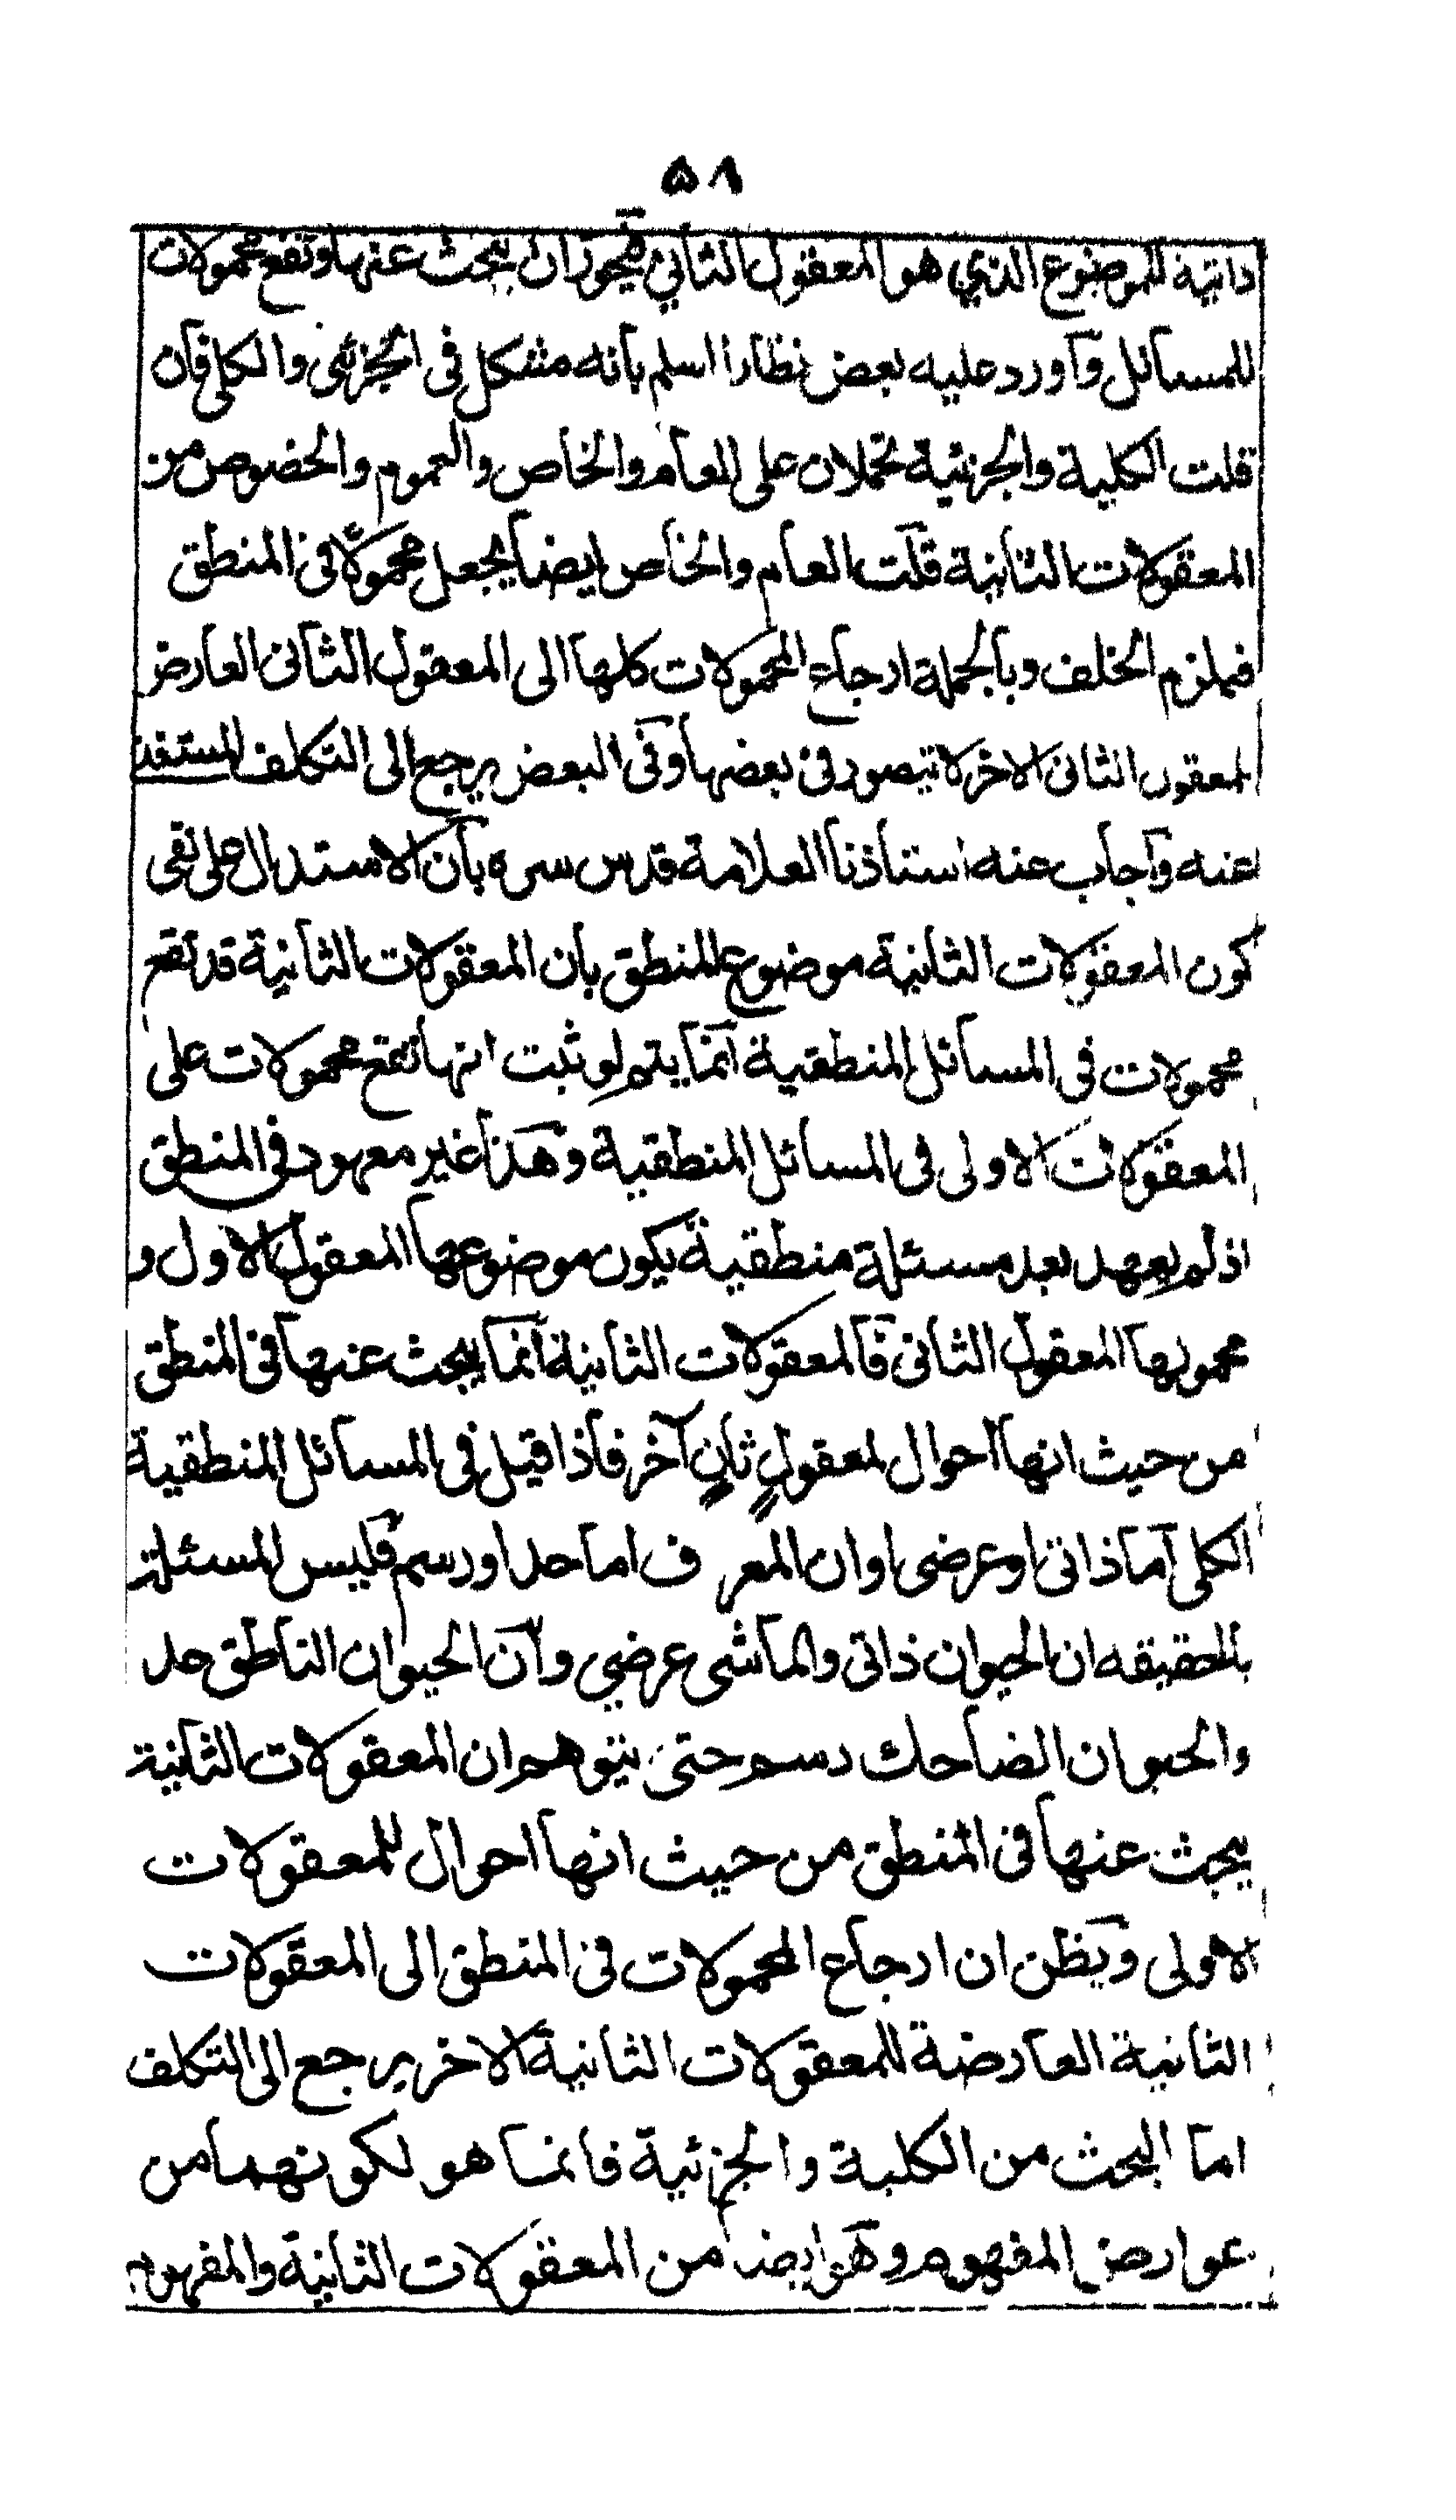 ٥٨
ذاتية للموضوع الذي هو المعقول الثاني فيجوز ان يبحث عنها وتقع محمولات
للمسائل وآورد عليه بعض نظار السلم بأنه مشكل فى الجزئى والكلى فان
قلت الكلية والجزئية تحملان على العام والخاص والعموم والخصوص من
المعقولات الثانية قلت العام والخاص ايضا يجعل محمولًا فى المنطق
فيلزم الخلف وبالجملة ارجاع المحمولات كلها الى المعقول الثانى العارض
لمعقول الثانى الاخر لا تيصور فى بعضها وفى البعض يرجع الى التكلف المستغنى
عنه وآجاب عنه استاذنا العلامة قدس سره بان الاستدلال على نفى
كون المعقولات الثانية موضوع المنطق بان المعقولات الثانية قد تقع
محمولات فى المسائل المنطقية انما يتم لو ثبت انها تقع محمولات على
المعقولات الاولى فى المسائل المنطقية وهذا غير معهود فى المنطق
اذ لم يعهد بعد مسئلة منطقية يكون موضوعها المعقول الاول و
محمولها المعقول الثانى فالمعقولات الثانية انما يبحث عنها فى المنطق
من حيث انها احوال لمعقولٍ ثانٍ آخر فاذا قيل فى المسائل المنطقية
الكلى اما ذاتى او عرضى او ان المعرف اما حد او رسم فليس المسئلة
بالحقيقه ان الحيوان ذاتى والماشى عرضي وان الحيوان الناطق حد
والحيوان الضاحك رسم حتى يتوهم ان المعقولات الثانية
يبحث عنها فى المنطق من حيث انها احوال للمعقولات
الاولى ويظن ان ارجاع المحمولات فى المنطق الى المعقولات
الثانية العارضة للمعقولات الثانية الاخر يرجع الى التكلف
اما البحث من الكلية والجزئية فانما هو لكونهما من
عوارض المفهوم وهو ايضا من المعقولات الثانية والمفهوم